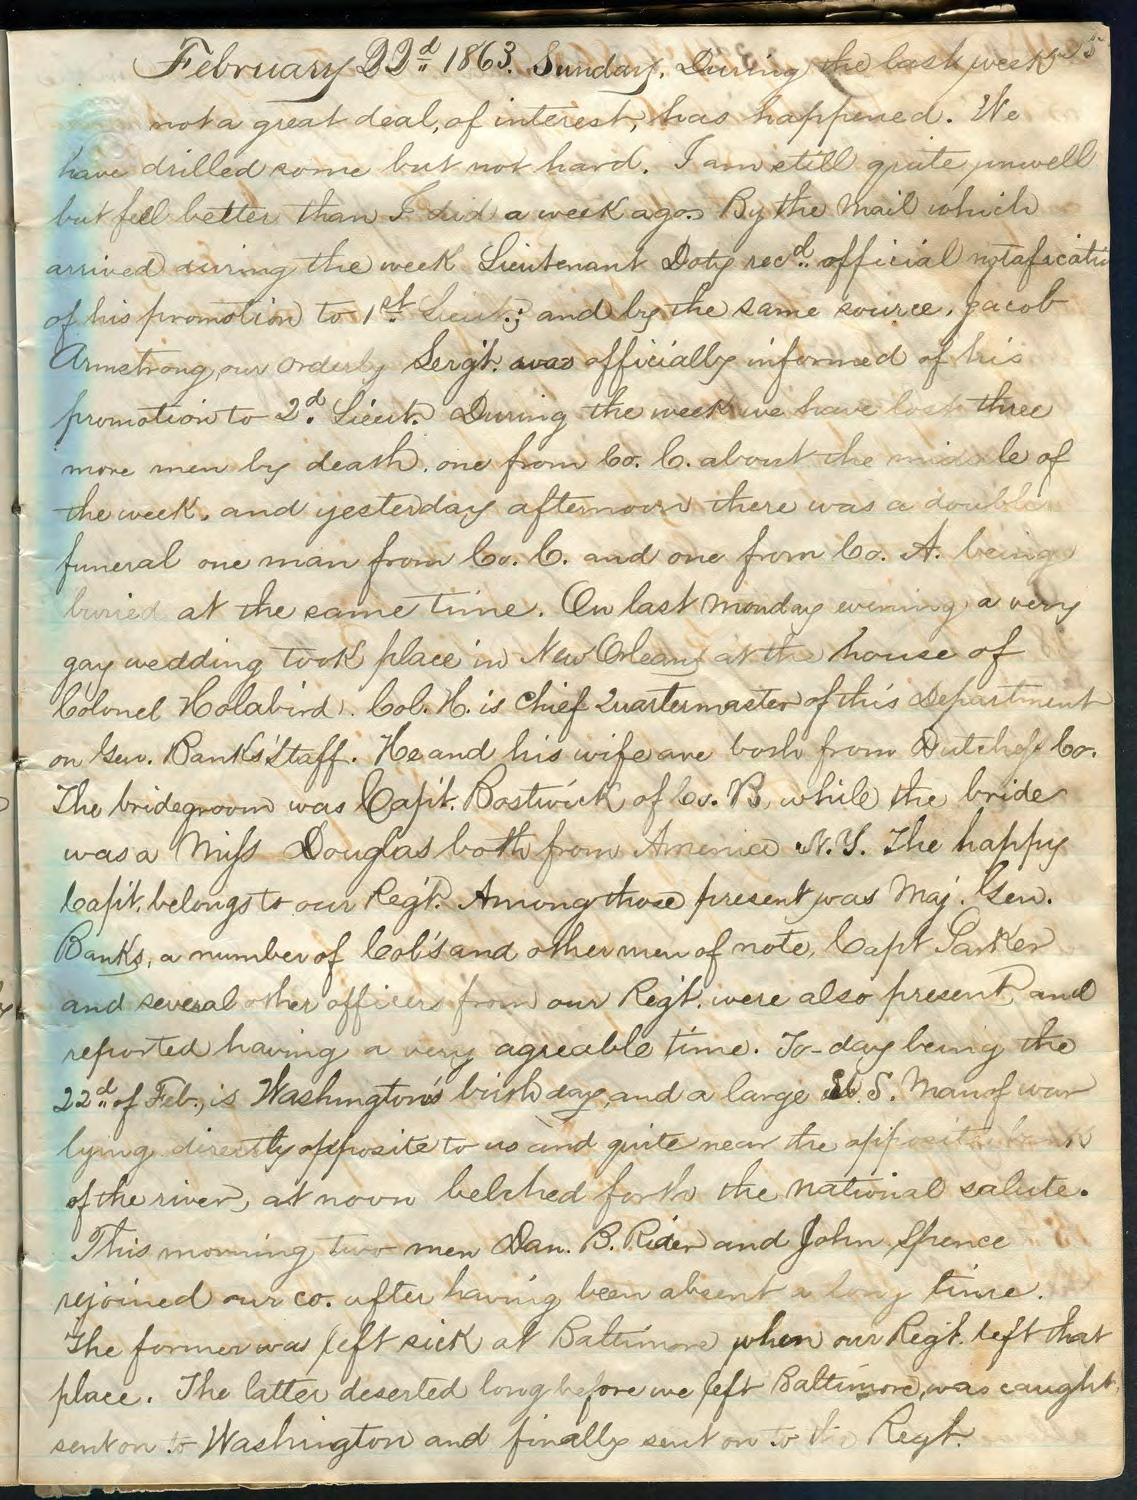 February 22d 1863. Sunday. During the last week
not a great deal, of interest, has happened. We
have drilled some but not hard. I am still quite unwell
but feel better than I did a week ago. By the Mail which
arrived during the week Lieutenant Doty recd. official notaficatio
of his promotion to 1st Lieut.; and by the same source, Jacob
Armstrong, our Orderly Sergt. was officially informed of his
promotion to 2d. Lieut. During the week we have lost three
more men by death, one from Co. C. about the middle of
the week, and yesterday afternoon there was a double
funeral one man from Co. C. and one from Co. A. being
buried at the same time. On last Monday evening a very
gay wedding took place in New Orleans at the house of
Colonel Holabird. Col. H. is Chief Quartermaster of this Department
on Gen. Banks' Staff. He and his wife are both from Dutchess Co.
The bridegroom was Capt. Bostwick of Co. B, while the bride
was a Miss Douglas both from Amenia N.Y. The happy
Capt. belongs to our Regt. Among those present was Maj. Gen.
Banks, a number of Col's and other men of note, Capt Parker
and several other officers from our Regt. were also present, and
reported having a very agreable time. To-day being the
22d. of Feb., is Washington's birth day, and a large U.S. Man of war
lying directly opposite to us and quite near the opposite bank
of the river, at noon belched forth the national salute.
This morning two men Dan. B. Rider and John Spence
rejoined our co. after having been absent a long time.
The former was left sick at Baltimore when our Regt. left that
place. The latter deserted long before we left Baltimore, was caught,
sent on to Washington and finally sent on to the Regt.